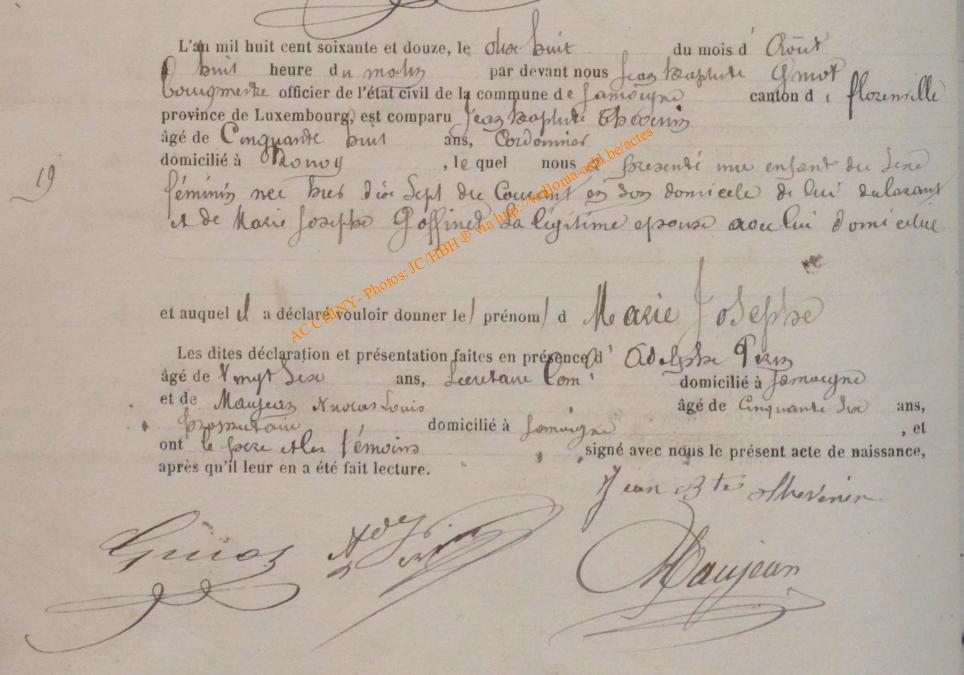 L'an mil huit cent soixante et douze, le dix huit du mois d' Août
à huit heure du matin par devant nous Jean Baptiste
bougmestre officier de l'état civil de la commune de Jamoigne canton d e florenville
province de Luxembourg, est comparu Jean Baptiste Thevenin
âgé de Cinquante huit ans, Cordonnier
domicilié à , lequel nous a présenté une enfant du sexe
19
féminin nee hier dix Sept du Courant en son domicile de lui
et de Marie Josephe Goffinet sa légitime epouse avec lui domicilié
et auquel il a déclaré vouloir donner le/ prénom/ d Marie Josephe
Les dites déclaration et présentation faites en présence d' Adolphe Pirin
âgé de Vingt Six ans, Secretaire Com¹ domicilié à Jamoigne
et de Maujean Nicolas Louis âgé de Cinquante Six ans,
domicilié à Jamoigne , et
ont le père et les témoins , signé avec nous le présent acte de naissance,
après qu'il leur en a été fait lecture.
Jean Bte Thevenin
Maujean
AC CHINY - Photos: JC/HBH ® via http://.be/actes